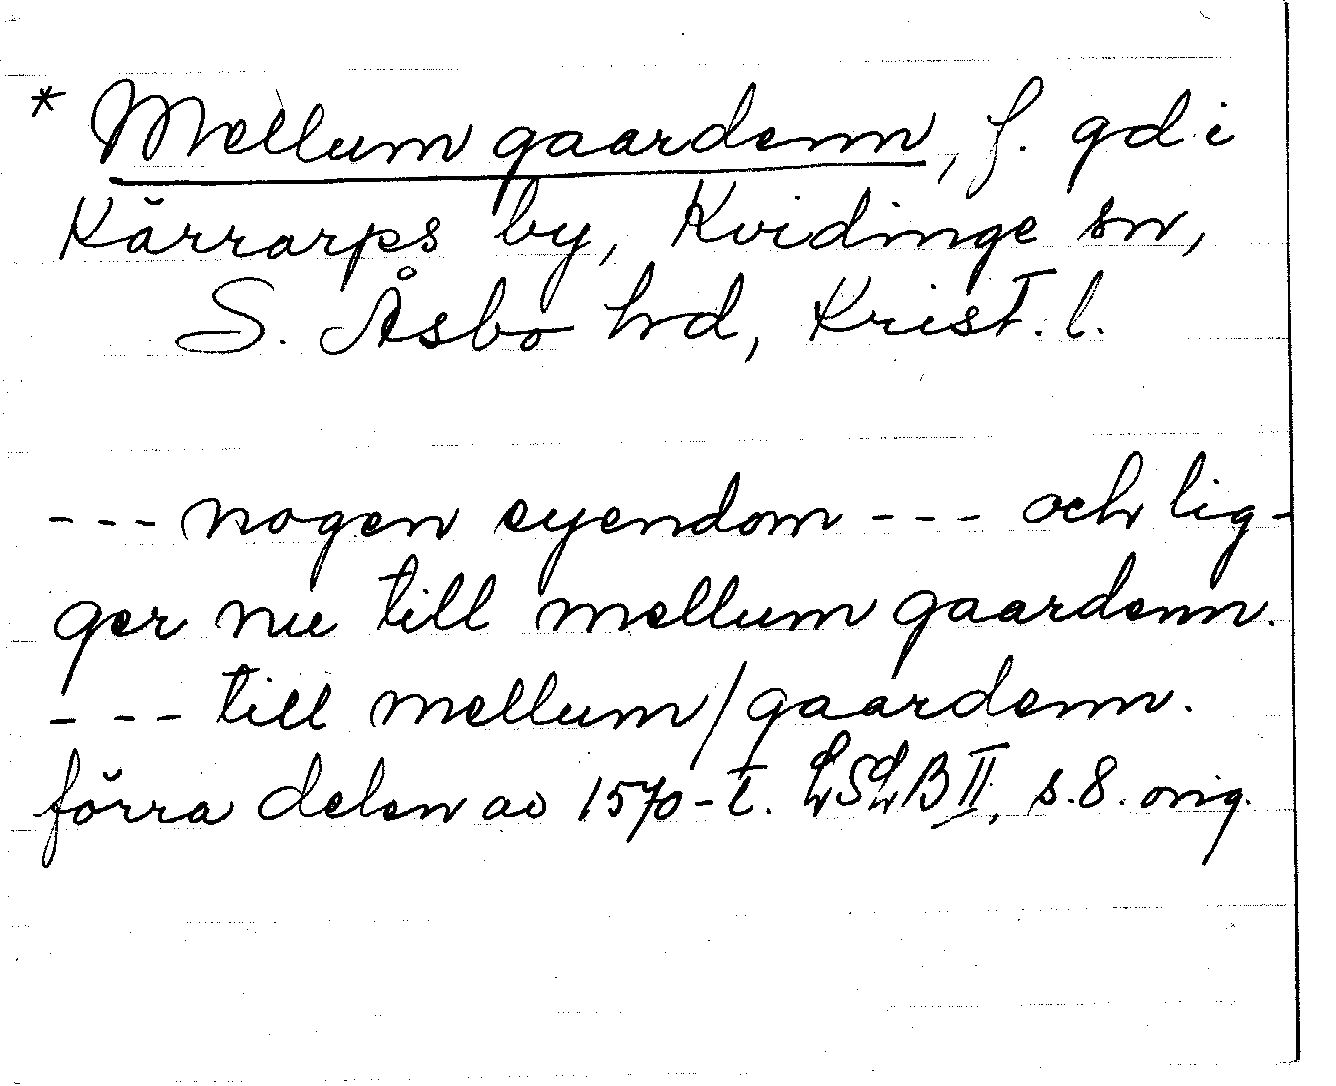 * Mellum gaardenn, f. gd i
Kärrarps by, Kvidinge sn,
S. Åsbo hd, Krist. l.
--- nogen eyendom --- och lig-
ger nu till mellum gaardenn.
--- till mellum/gaardenn.
förra delen av 1570-t. LSLB II, s. 8. orig.